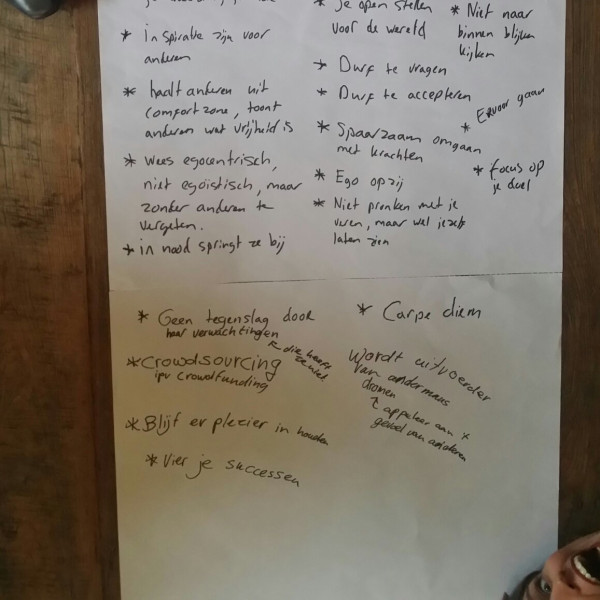 * inspiratie zijn voor
anderen
* haalt anderen uit
comfortzone, toont
anderen wat vrijheid is
* wees egocentrisch,
niet egoïstisch, maar
zonder anderen te
vergeten.
* in nood springt ze bij
* je open stellen
voor de wereld
* Durf te vragen
* Durf te accepteren
* Spaarzaam omgaan
met krachten
* Ego opzij
* Niet pronken met je
veren, maar wel jezelf
laten zien
* Niet naar
binnen blijven
kijken
* Ervoor gaan
* focus op
je doel
* Geen tegenslag door
haar verwachtingen
die heeft
ze niet
* Crowdsourcing
ipv crowdfunding
* Blijf er plezier in houden
* Vier je successen
* Carpe diem
Wordt uitvoerder
van andermans
dromen
appeleer aan
gevoel van anderen